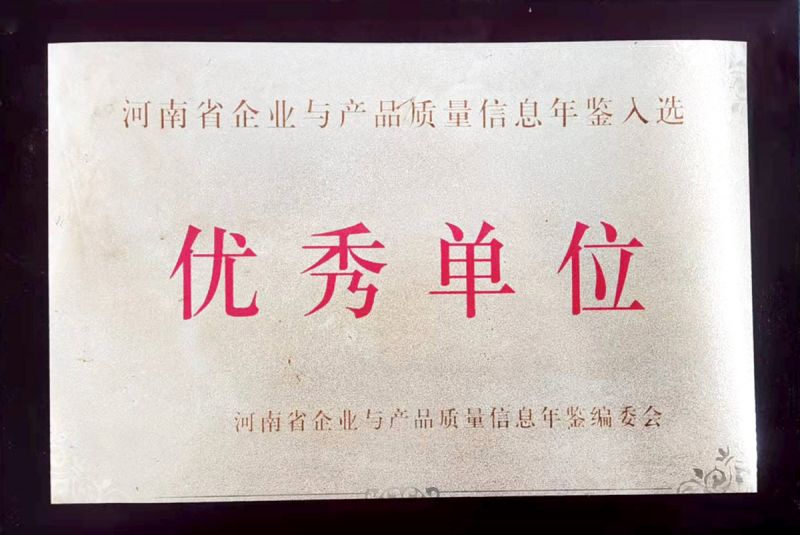 河南省企业与产品质量信息年鉴入选
优秀单位
河南省企业与产品质量信息年鉴编委会